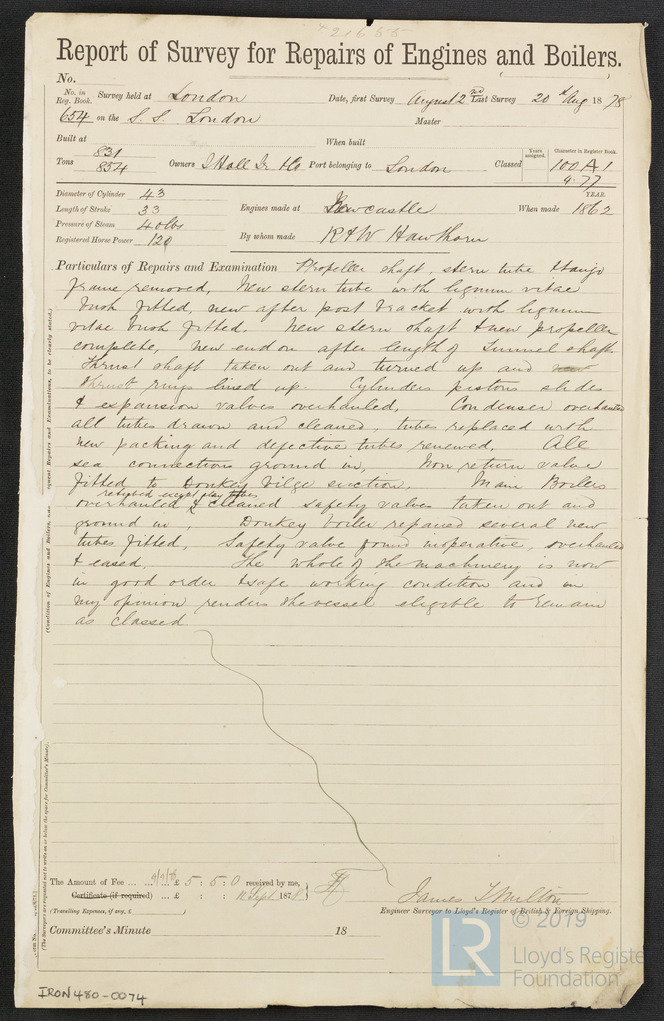 21655
Report of Survey for Repairs of Engines and Boilers.
No.
No. in Reg. Book. Survey held at London Date, first Survey August 2nd Last Survey 20th Aug 1878
654 on the S. S. London Master
Built at When built
Tons 831 834 Owners J Hall Jr. & Co Port belonging to London Classed Years assigned. Character in Register Book. 100 A 1 9.77
Diameter of Cylinder 43
Length of Stroke 33
Pressure of Steam 40 lbs
Registered Horse Power 120
Engines made at Newcastle When made YEAR. 1862
By whom made R & W Hawthorn
Particulars of Repairs and Examination Propeller shaft, stern tube & banjo
frame removed, New stern tube with lignum vitae
bush fitted, new after post bracket with lignum
vitae bush fitted. New stern shaft & new propeller
complete, new end on after length of Tunnel shaft
Thrust shaft taken out and turned up and
thrust rings lined up. Cylinders pistons slides
& expansion valves overhauled, Condenser overhauled
all tubes drawn and cleaned, tubes replaced with
new packing and defective tubes renewed. All
sea connections ground in, Non return valve
fitted to Donkey bilge suction. Main Boilers
retubed except stay tubes
overhauled & cleaned safety valves taken out and
ground in, Donkey boiler repaired several new
tubes fitted, Safety valve found inoperative, overhauled
& eased. The whole of the machinery is now
in good order & safe working condition and in
my opinion renders the vessel eligible to remain
as classed
The Amount of Fee ... ... 9/9/78 £ 5 : 5 : 0 received by me,
Certificate (if required) ... £ : : 11 Sept 1878
(Travelling Expenses, if any, £ )
James T Milton
Engineer Surveyor to Lloyd's Register of British & Foreign Shipping.
Committee's Minute 18
IRON 480-0074
LR © 2019
Lloyd's Registe
Foundation